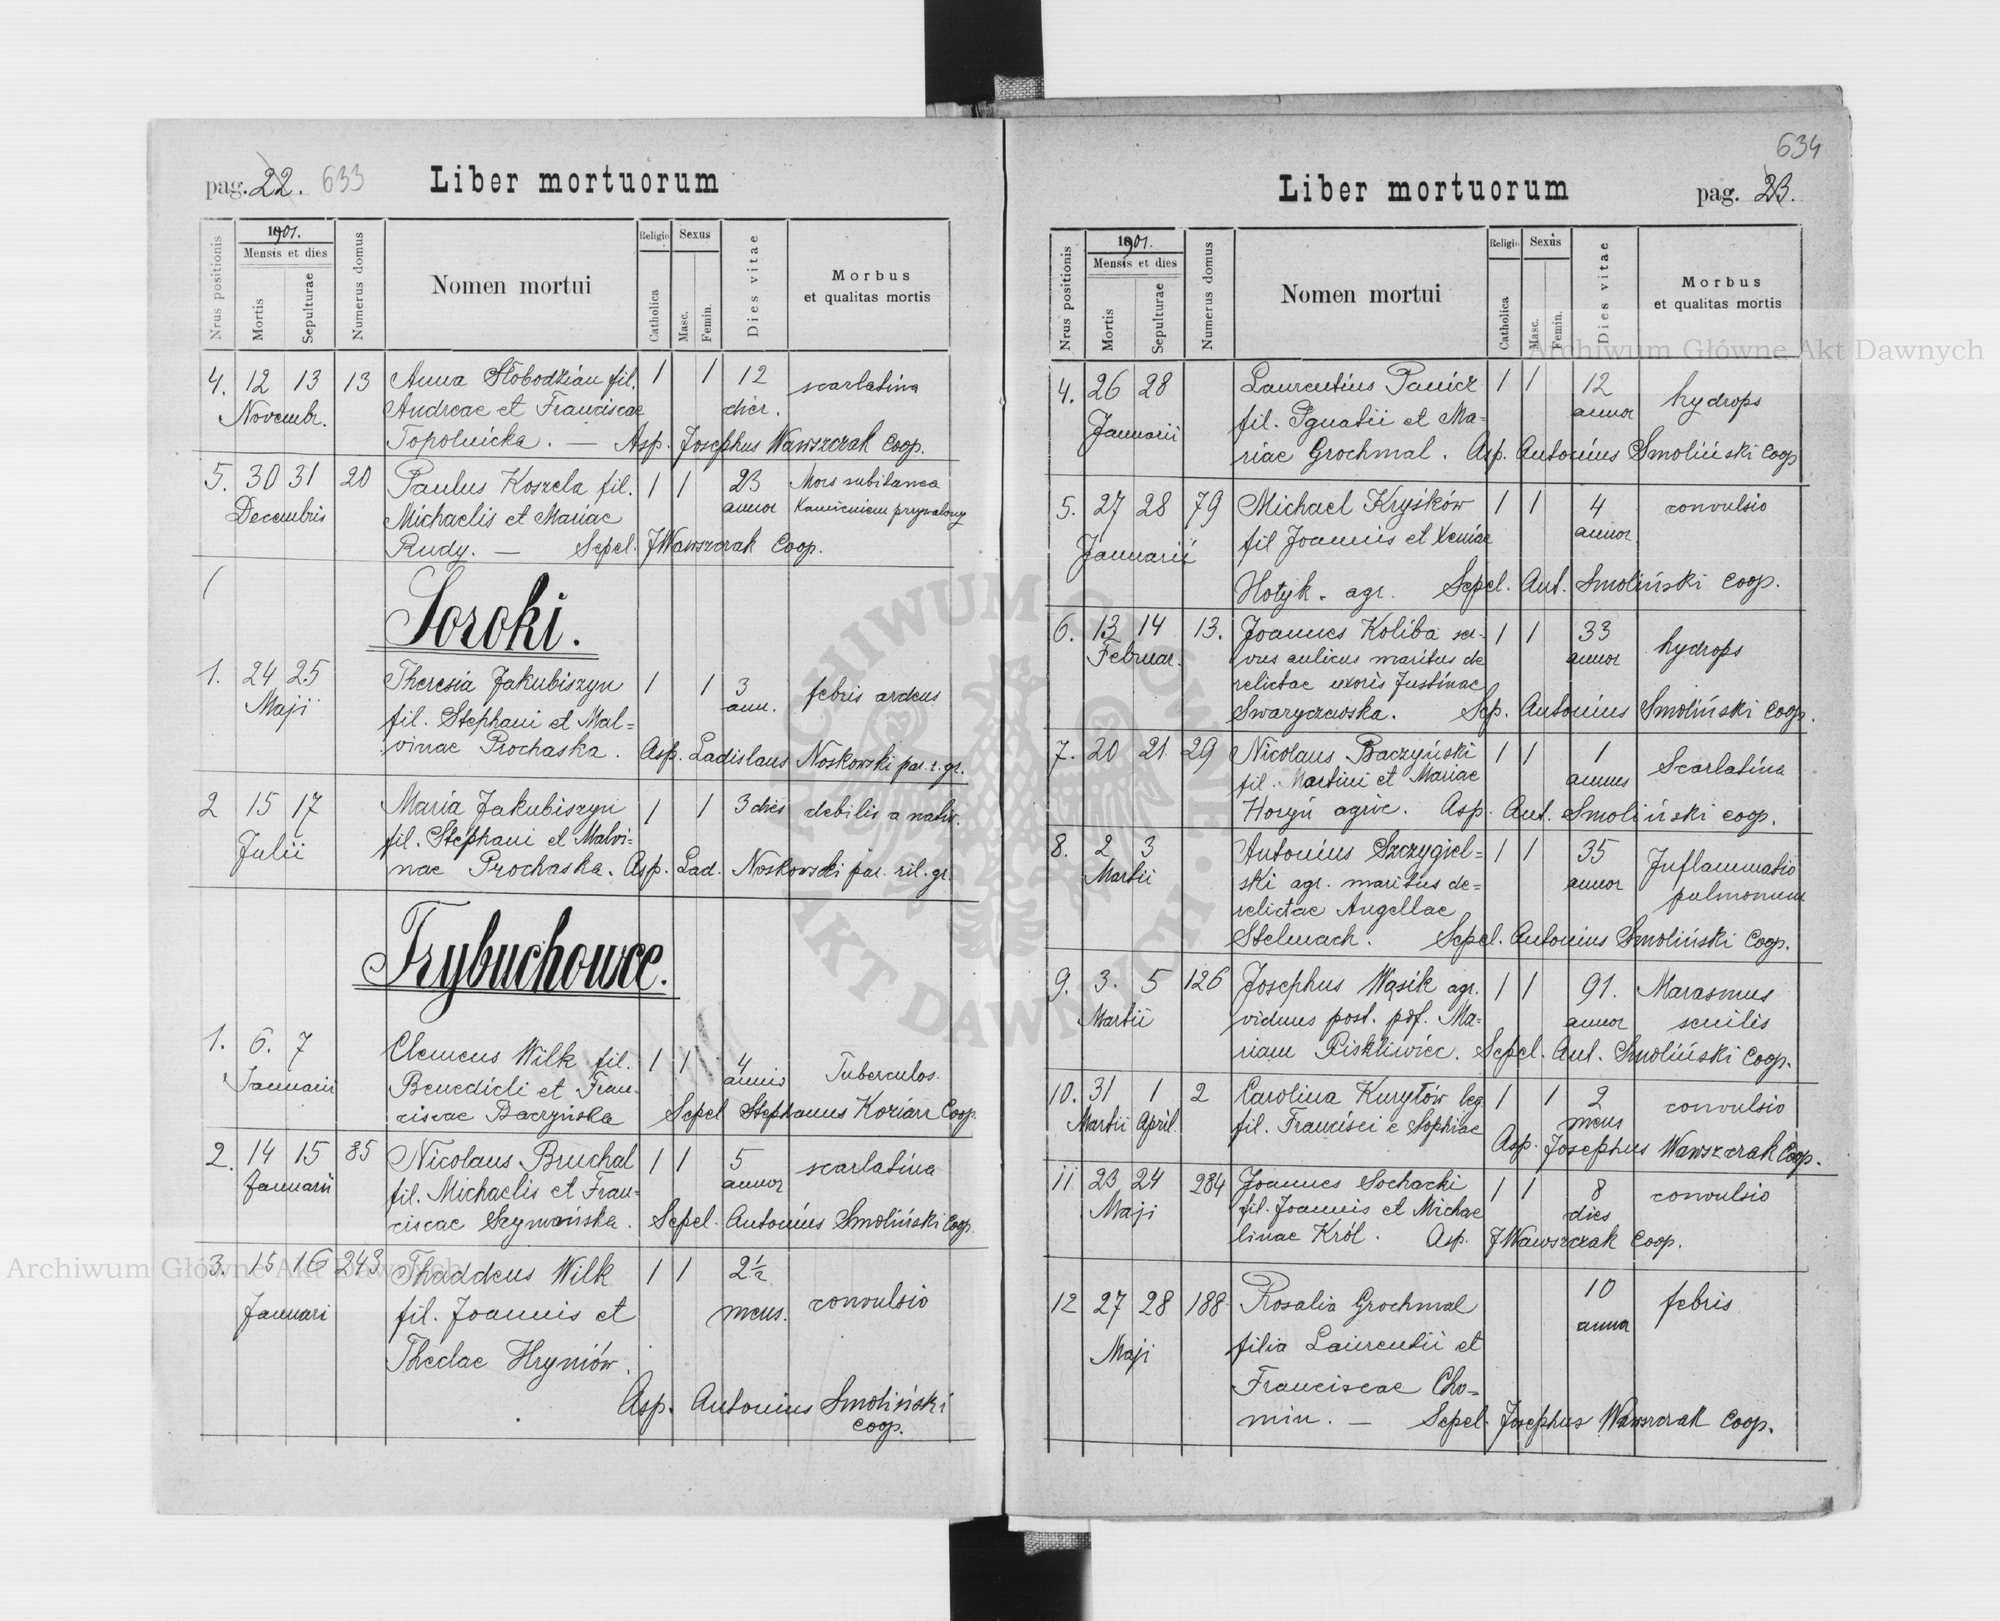 pag. 22. 633 Liber mortuorum
Nrus positionis
1901.
Mensis et dies
Mortis
Sepulturae
Numerus domus
Nomen mortui
Religio
Catholica
Sexus
Masc.
Femin.
Dies vitae
Morbus
et qualitas mortis
4. 12 13 13 Anna Słobodzian fil. 1 1 12 scarlatina
Novembr. Andreae et Franciscae dier.
Topolnicka. — Asp. Josephus Wawszczak Coop.
5. 30 31 20 Paulus Koszela fil. 1 1 23 Mors subitanea
Decembris Michaelis et Mariae annor Kamieniem przywalony
Rudy. — Sepel. JWawszczak Coop.
Soroki.
1. 24 25 Theresia Jakubiszyn 1 1 3 febris ardens
Maji fil. Stephani et Mal= ann.
vinae Prochaska. Asp. Ladislaus Noskowski par. r. gr.
2 15 17 Maria Jakubiszyn 1 1 3 dies debilis a nativ.
Julii fil. Stephani et Malvi=
nae Prochaska. Asp. Lad. Noskowski par. ril. gr.
Trybuchowce.
1. 6. 7 Clemens Wilk fil. 1 1 4 Tuberculos.
Januarii Benedicti et Fran- annis
ciscae Baczyńska Sepel Stephanus Koziarz Coop.
2. 14 15 85 Nicolaus Bruchal 1 1 5 scarlatina
Januarii fil. Michaelis et Fran- annor
ciscae Szymańska. Sepel. Antonius Smoliński Coop.
3. 15 16 243 Thaddeus Wilk 1 1 2½
Januari fil. Joannis et mens. convulsio
Theclae Hryniów.
Asp. Antonius Smoliński
coop.
634
Liber mortuorum pag. 23.
Nrus positionis
1901.
Mensis et dies
Mortis
Sepulturae
Numerus domus
Nomen mortui
Religio
Catholica
Sexus
Masc.
Femin.
Dies vitae
Morbus
et qualitas mortis
4. 26 28 Laurentius Panicz 1 1 12 hydrops
Januarii fil. Ignatii et Ma= annor
riae Grochmal. Asp. Antonius Smoliński Coop
5. 27 28 79 Michael Kryśków 1 1 4 convulsio
Januarii fil Joannis et Xeniae annor
Hotyk. agr. Sepel. Ant. Smoliński Coop.
6. 13 14 13. Joannes Koliba ser- 1 1 33 hydrops
Februar. vus aulicus maritus de annor
relictae uxoris Justinae
Swaryczewska. Sep. Antonius Smoliński Coop.
7. 20 21 29 Nicolaus Baczyński 1 1 1 Scarlatina
fil. Martini et Mariae annus
Horyń agric. Asp. Ant. Smoliński coop.
8. 2 3 Antonius Szczygiel= 1 1 35 Inflammatio
Martii ski agr. maritus de= annor pulmonum
relictae Angellae
Stelmach. Sepel. Antonius Smoliński Coop.
9. 3. 5 126 Josephus Wąsik agr. 1 1 91. Marasmus
Martii viduus post. pdf. Ma= annor senilis
riam Piskliwiec. Sepel. Ant. Smoliński Coop.
10. 31 1 2 Carolina Kuryłów leg 1 1 2 convulsio
Martii April. fil. Francisci e Sophiae mens
Asp. Josephus Wawszczak Coop.
11 23 24 284 Joannes Sochacki 1 1 8 convulsio
Maji fil. Joannis et Michae dies
linae Król. Asp. JWawszczak Coop.
12 27 28 188 Rosalia Grochmal 10 febris
Maji filia Laurentii et annor
Franciscae Cho=
min. — Sepel. Josephus Wawszczak Coop.
Archiwum Główne Akt Dawnych
Archiwum Główne Akt Dawnych
ARCHIWUM GŁÓWNE AKT DAWNYCH